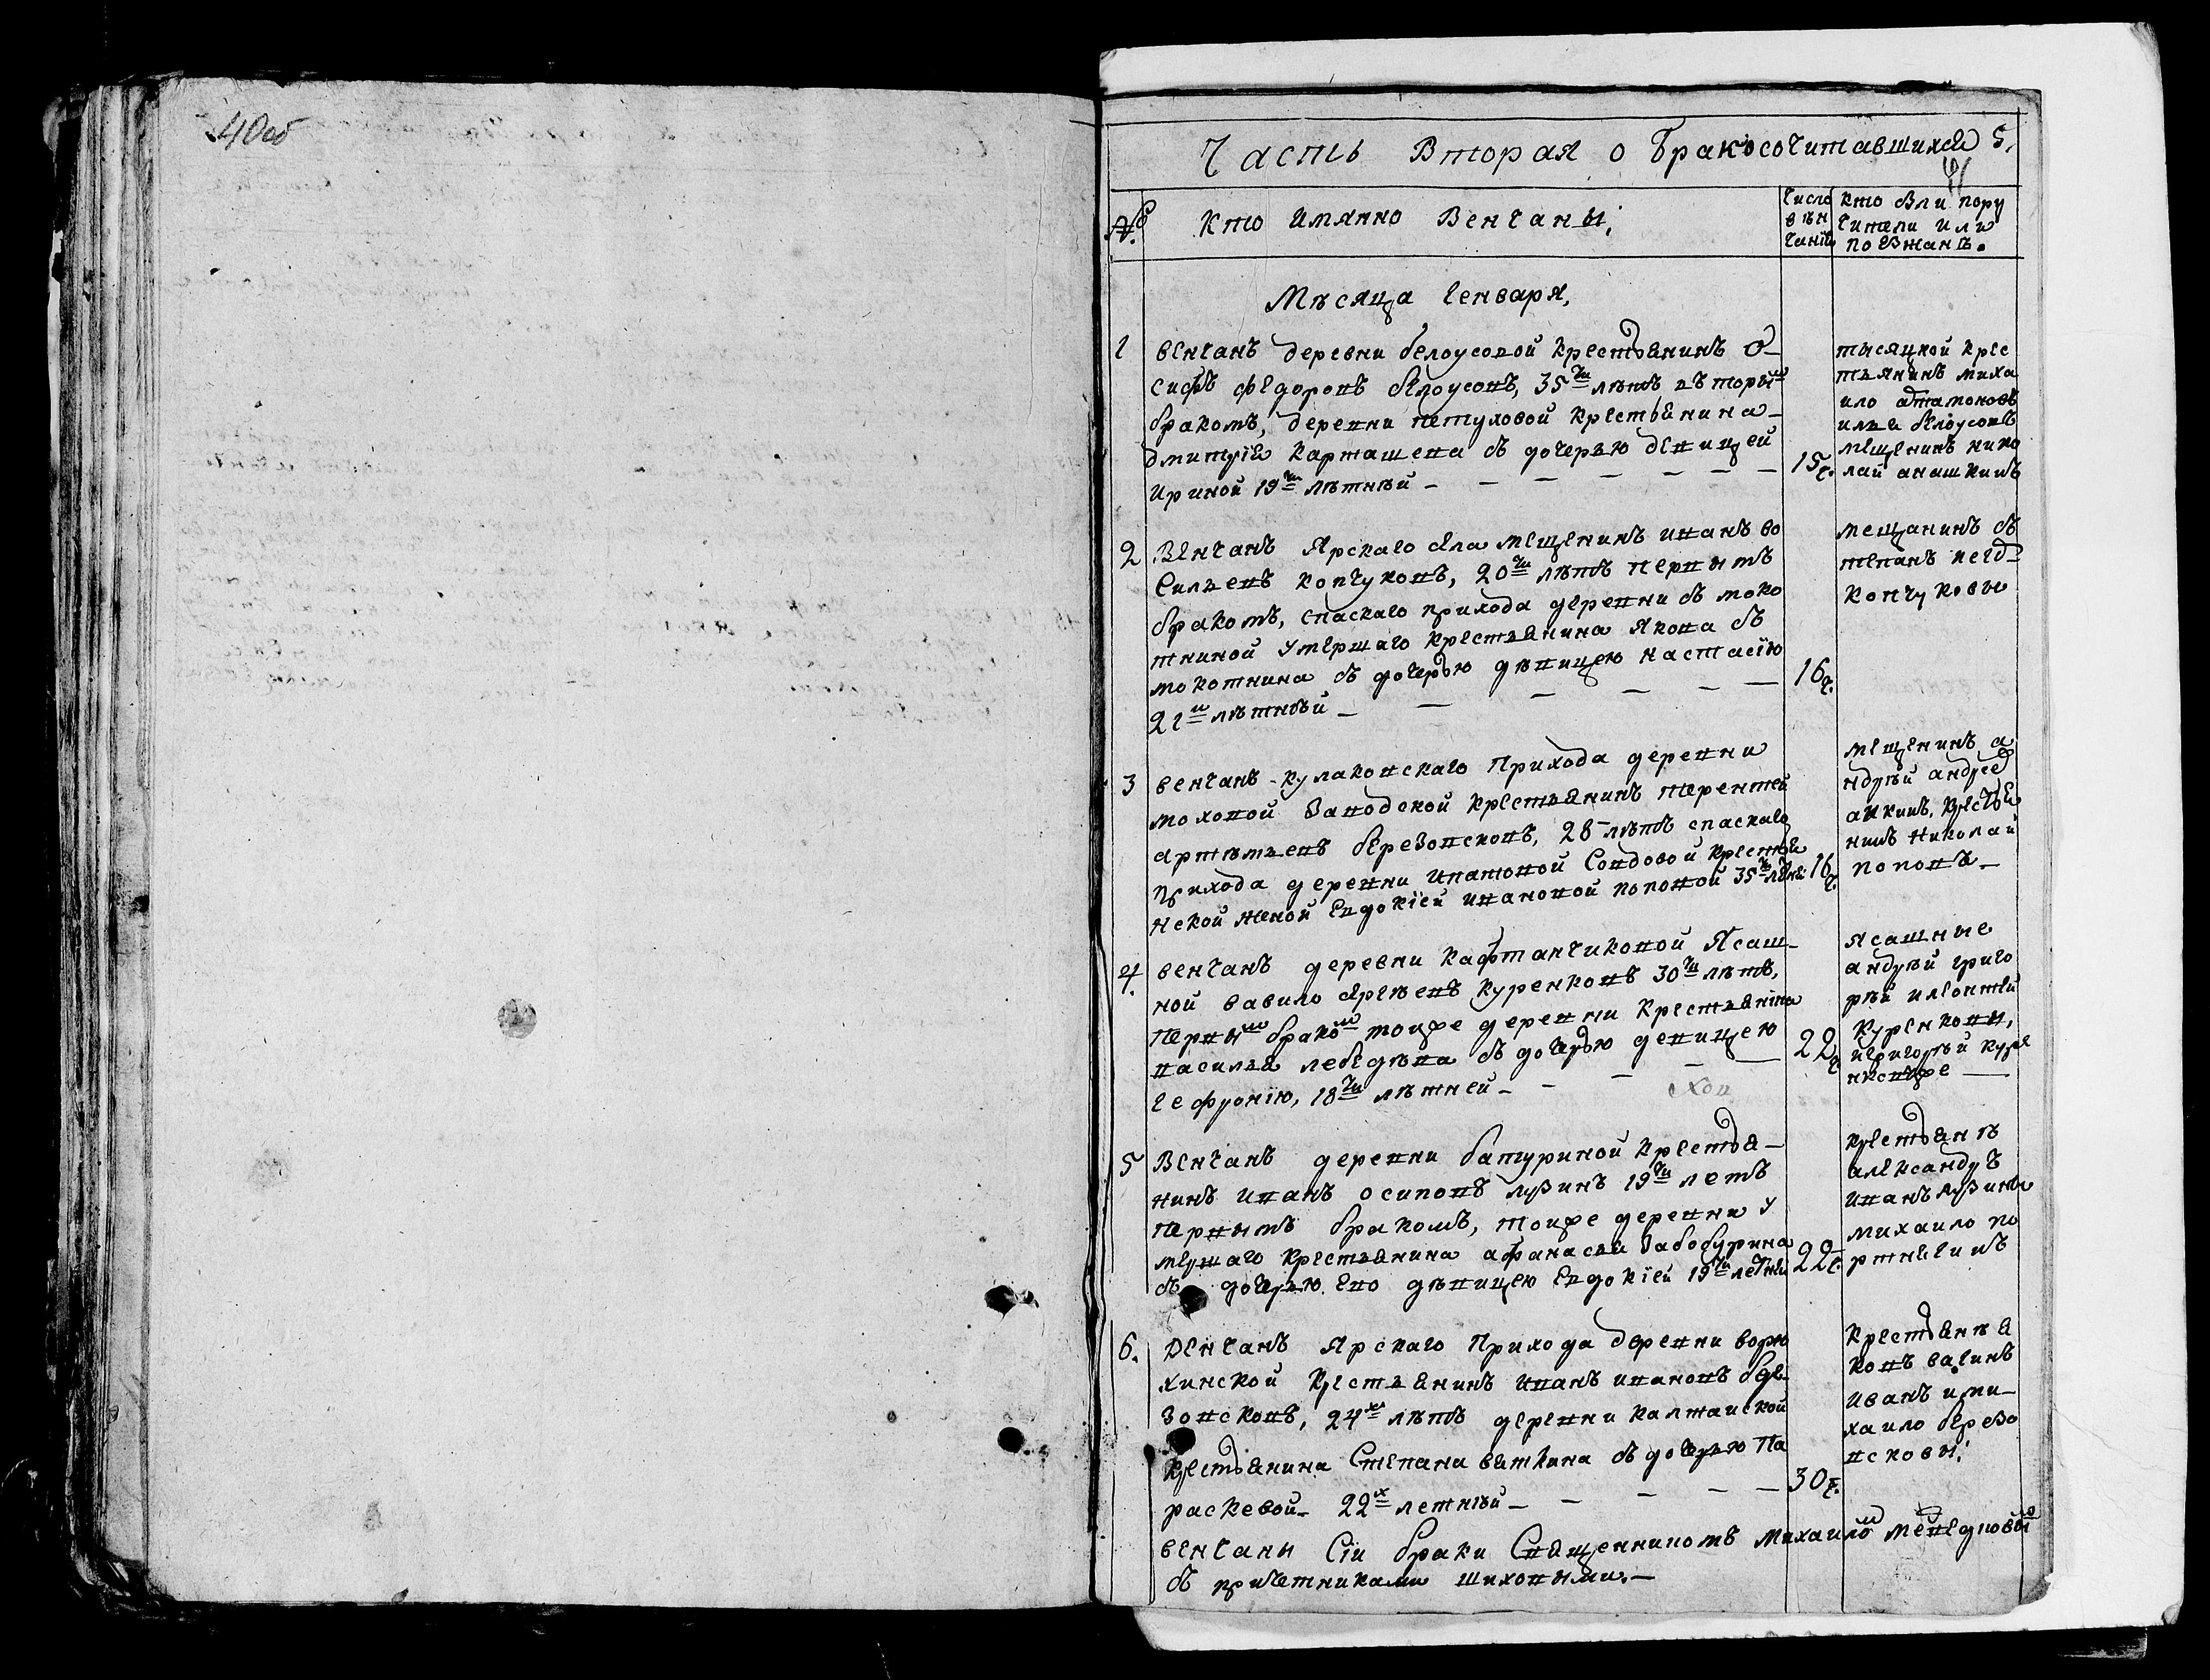 40об
Часть Вторая о Бракосочитавшихся 5.
41
№ Кто имянно Венчаны;
Число вѣнчаній
Кто были поручители или поѣзжанѣ.
Мѣсяца Генваря,
1 венчанъ деревни белоусовой крестьянинъ О-
сифъ федоровъ белоусовъ, 35ти лѣтъ вторым
бракомъ, деревни петуховой крестьянина
дмитрія карташева съ дочерью девицей
ириной 19ти лѣтнѣй - - - - - 15ч.
тысяцкой крес
тьянинъ миха
ило артамоновъ
илья белоусовъ
мещенинъ нико
лай анашкинъ
2 Венчанъ Ярскаго села мещенинъ иванъ ва
сильевъ копчуковъ, 20ти лѣтъ первымъ
бракомъ, спаскаго прихода деревни смоко
тниной умершаго крестьянина якова с
мокотнина съ дочерью дѣвицею настасією
21и лѣтнѣй - - - - - 16ч.
мещанинъ с
тепанъ
копчуковы
3 венчанъ кулаковскаго прихода деревни
моховой заводской крестьянинъ терентей
артѣмьевъ березовсковъ, 28 лѣтъ спаскаго
прихода деревни ипатовой Вдовой крестья
нской женой Евдокіей ивановой поповой 35ти лѣтней 16ч.
мещенинъ а
ндрѣй андрее
крестья
нинъ николай
поповъ -
4. венчанъ деревни кафтанчиковой Ясаш-
ной вавило куренковъ 30ти лѣтъ,
первым браком тоиже деревни крестьянина
василья лебедѣва съ дочерью девицею
18ти лѣтней - - - - - 22ч.
Ясашные
андрѣй григо
рѣй илеонтей
куренковы,
игригорѣй куре
нковже -
5 Венчанъ деревни батуриной крестья-
нинъ иванъ осиповъ лузинъ 19ти летъ
первымъ бракомъ, тоиже деревни у
мершаго крестьянина афанасья забобурина
съ дочерью Ево дѣвицею Евдокіей 19ти летней 22ч.
крестьянѣ
александръ
иванъ лузины
михаило по
ртнягинъ
6. Венчанъ Ярскаго Прихода деревни ворю
хинской крестьянинъ иванъ ивановъ бере
зовсковъ, 24х лѣтъ деревни калтайской
крестьянина Степана вяткина съ дочерью Па
раскевой - 22х летнѣй - - - - - 30ч.
крестьянѣ я
ковъ вагинъ
иванъ ими-
хаило березо
всковы;
венчаны Сіи браки Священникомъ михаилом
съ причетниками шиховыми. -